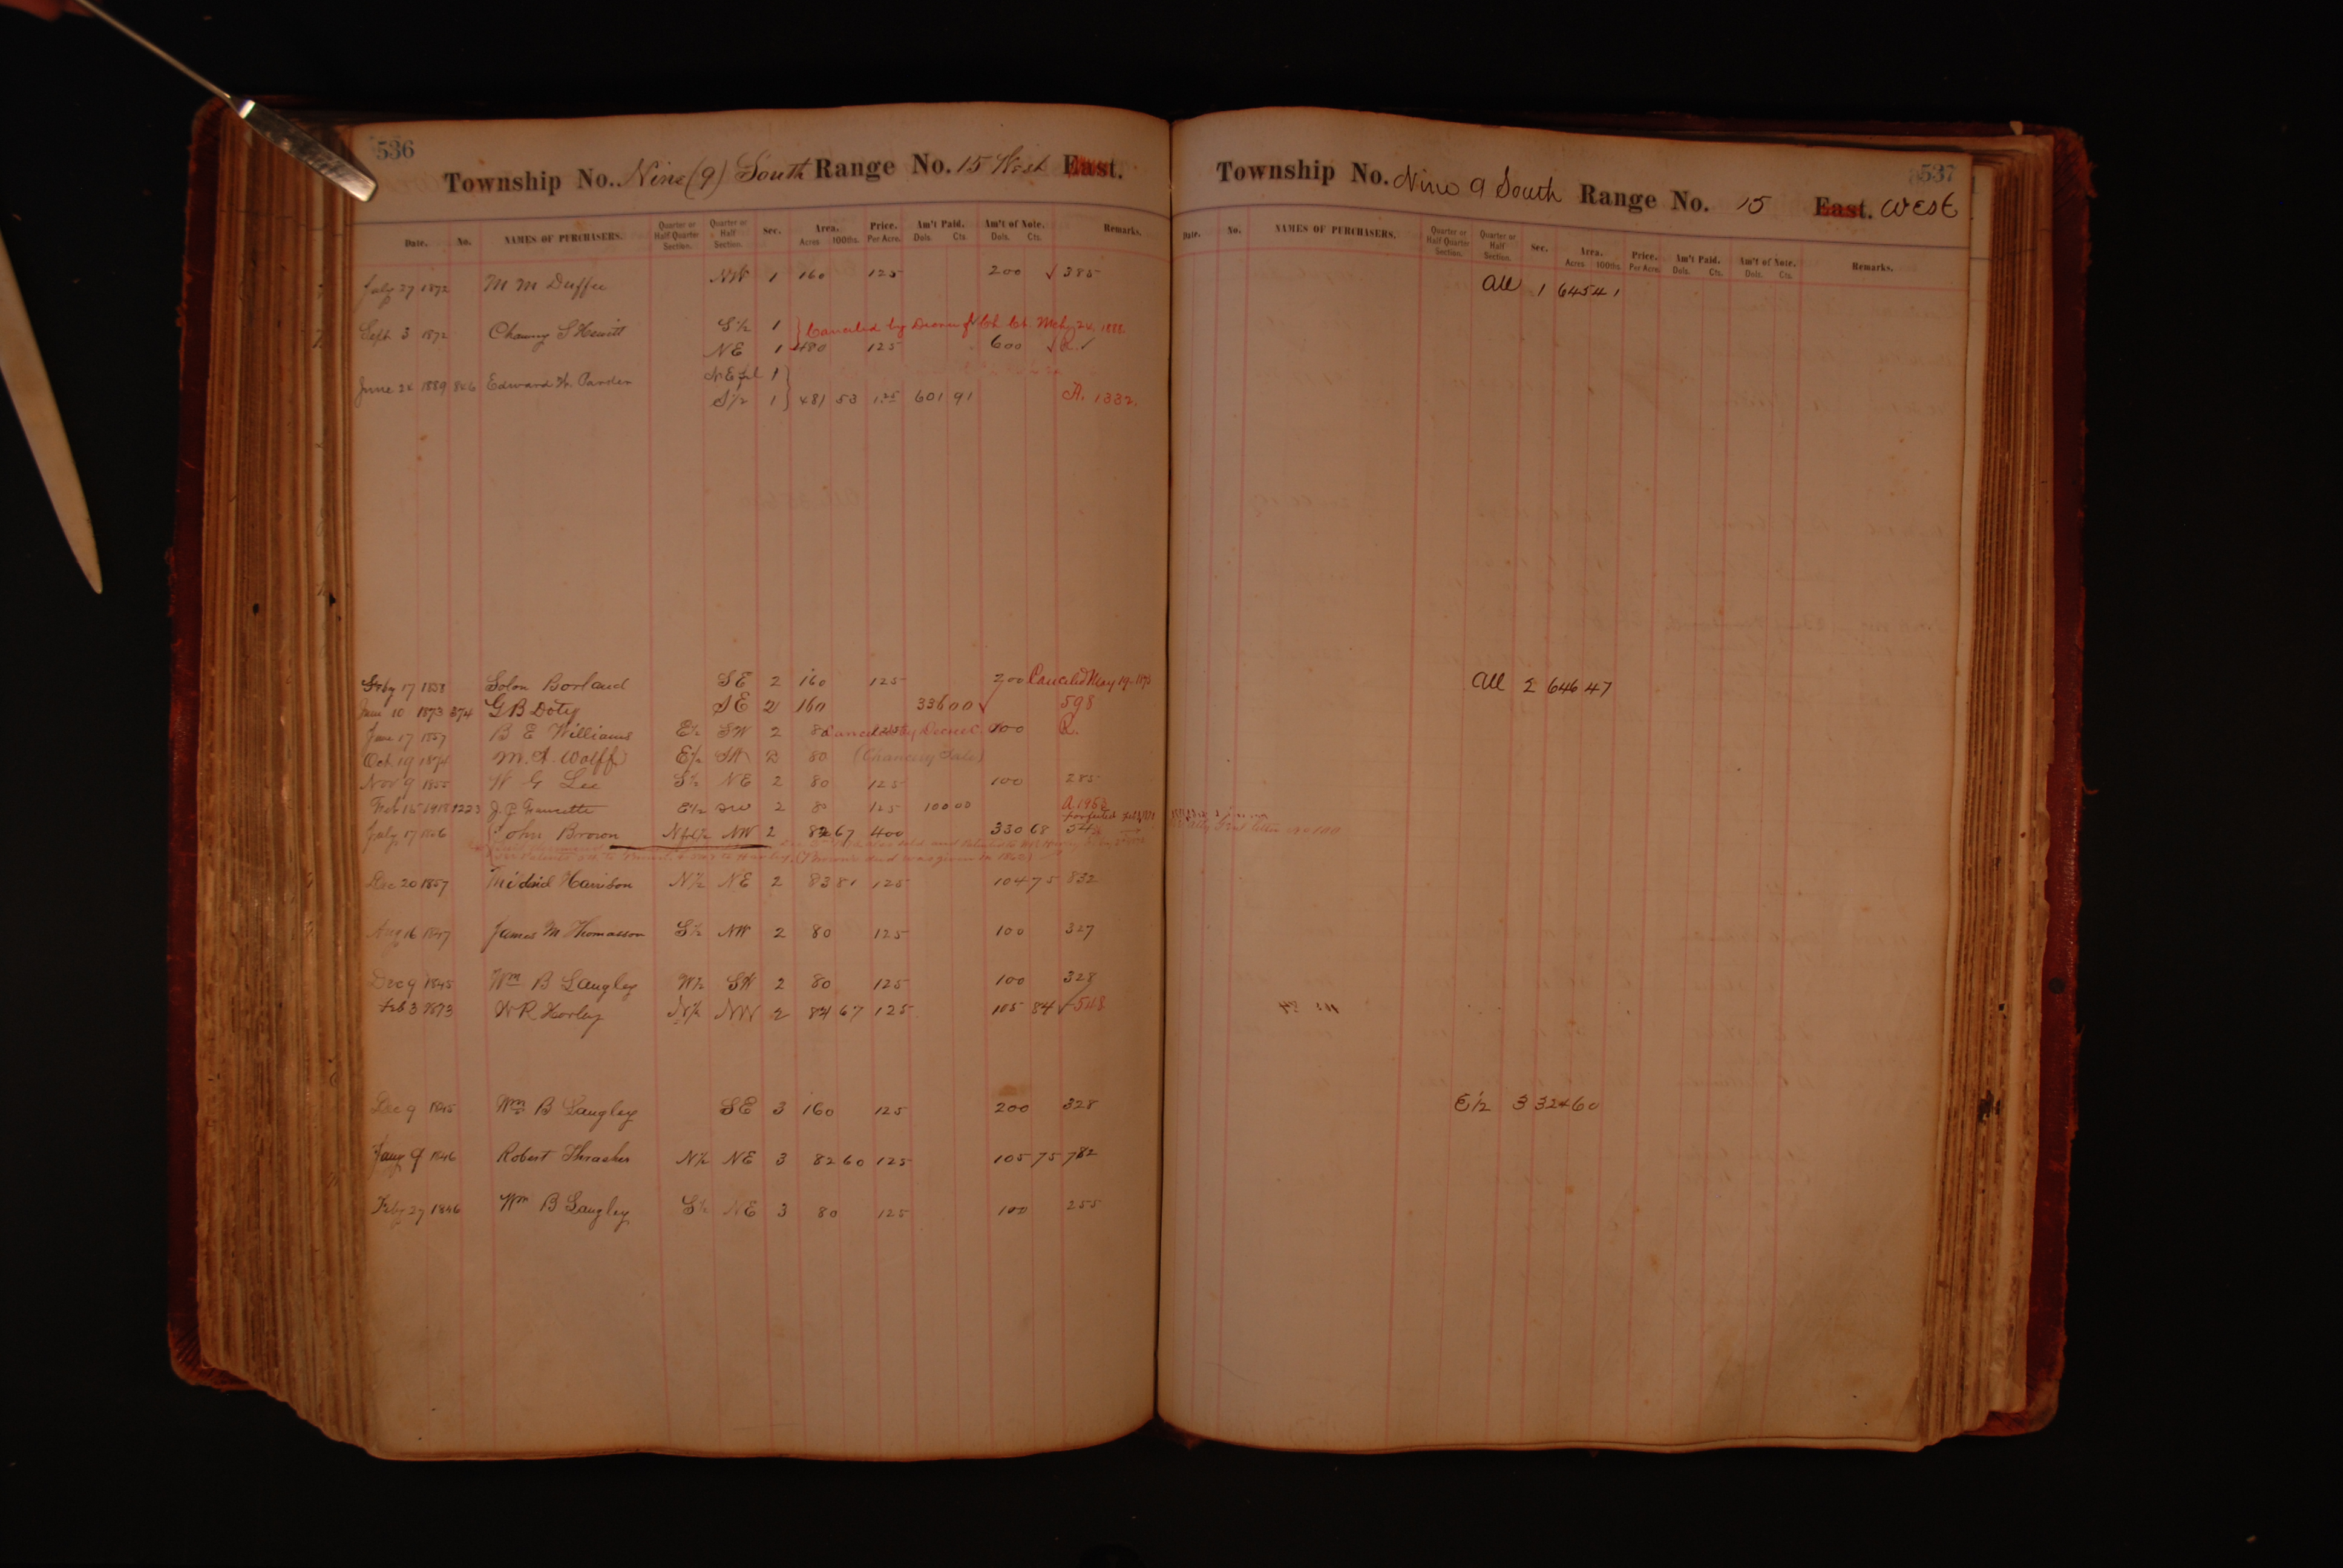 536
Township No. Nine (9) South Range No. 15 West East.
Date. No. NAMES OF PURCHASERS. Quarter or Half Quarter Section. Quarter or Half Section. Sec. Area. Acres 100ths. Price. Per Acre. Am't Paid. Dols. Cts. Am't of Note. Dols. Cts. Remarks.
July 27 1872 M M Duffee NW 1 160 125 200 √ 385
Sept 3 1872 S Hewitt S½ 1 } Canceled by Decree 24. 1888
NE 1 480 125 600 √ R. √
June 24 1889 846 Edward W. NE frl 1 }
S½ 1 } 481 53 1.25 601 91 A. 1332.
17 1858 Solon Borland SE 2 160 125 200 Canceled May 19
10 1873 374 G B Doty SE 2 160 336 00 √ 598
June 17 1857 B E Williams E½ SW 2 80 Canceled by Decree R.
Oct 19 M. A. Wolff E½ 2 80 (Chancery Sale)
Nov 9 1855 W G Lee S½ NE 2 80 125 100 285
Feb 15 1918 1223 J. P. E½ SW 2 80 125 100 00 A. 1953
perfected
July 17 John Brown N frl ½ NW 2 67 400 330 68
Dec 20 1857 Harrison N½ NE 2 83 81 125 104 75 832
Aug 16 1847 James M Thomasson S½ NW 2 80 125 100 327
Dec 9 1845 Wm B Langley W½ SW 2 80 125 100 328
Feb 3 1873 W R N½ NW 2 84 67 125 105 84 √ 548
Dec 9 1845 Wm B Langley SE 3 160 125 200 328
Jany 9 1846 Robert Thrasher N½ NE 3 82 60 125 105 75 782
Feby 27 1846 Wm B Langley S½ NE 3 80 125 100 255
537
Township No. Nine 9 South Range No. 15 East. West
Date. No. NAMES OF PURCHASERS. Quarter or Half Quarter Section. Quarter or Half Section. Sec. Area. Acres 100ths. Price. Per Acre Am't Paid. Dols. Cts. Am't of Note. Dols. Cts. Remarks.
All 1 645 41
All 2 646 47
E½ 3 324 60